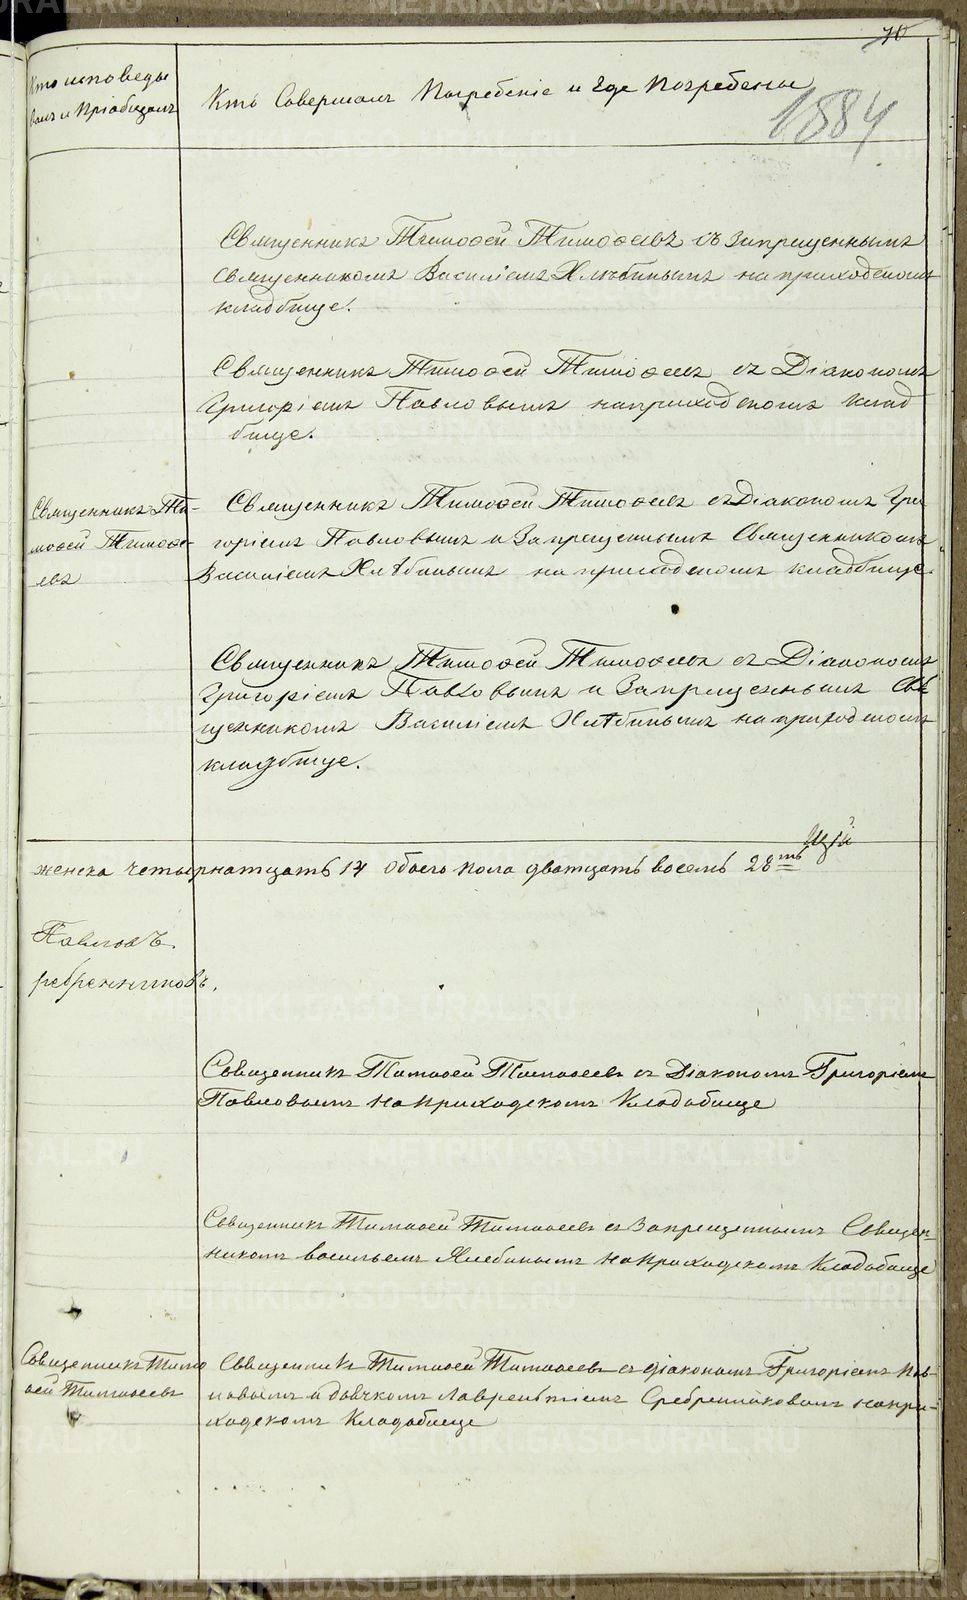 70
Кто исповеды
валъ и Пріобщалъ
Кто Совершалъ Погребеніе и Где Погребены
1884
Священникъ Тимоѳей Тимоѳеевъ съ запрещеннымъ
священникомъ Василіемъ Хлѣбинымъ на приходскомъ
кладбище.
Священникъ Тимоѳей Тимоѳеевъ съ Діакономъ
Григоріемъ Павловымъ на приходскомъ клад
бище.
Священникъ Ти-
моѳей Тимоѳе-
евъ
Священникъ Тимоѳей Тимоѳеевъ съ Діакономъ Гри
горіемъ Павловымъ и Запрещеннымъ Священникомъ
Василіемъ Хлѣбинымъ на приходскомъ кладбище.
Священникъ Тимоѳей Тимоѳеевъ съ Діакономъ
Григоріемъ Павловымъ и Запрещеннымъ Свя
щенникомъ Василіемъ Хлѣбинымъ на приходскомъ
кладбище.
женска четырнатцать 14 обоего пола дватцать восемь 28мъ
Павловъ.
ребренниковъ.
Священникъ Тимоѳей Тимоѳеевъ съ Діакономъ Григоріемъ
Павловымъ на приходскомъ Кладобище
Священникъ Тимоѳей Тимоѳеевъ съ Запрещеннымъ Священ-
никомъ васильемъ Хлебинымъ на приходскомъ Кладобище
Священникъ Тимо
ѳей Тимоѳеевъ
Священникъ Тимоѳей Тимоѳеевъ съ діакономъ Григоріемъ Пав-
ловымъ и дьячкомъ Лаврентіемъ Сребренниковымъ на при-
ходскомъ Кладобище
METRIKI.GASO-URAL.RU